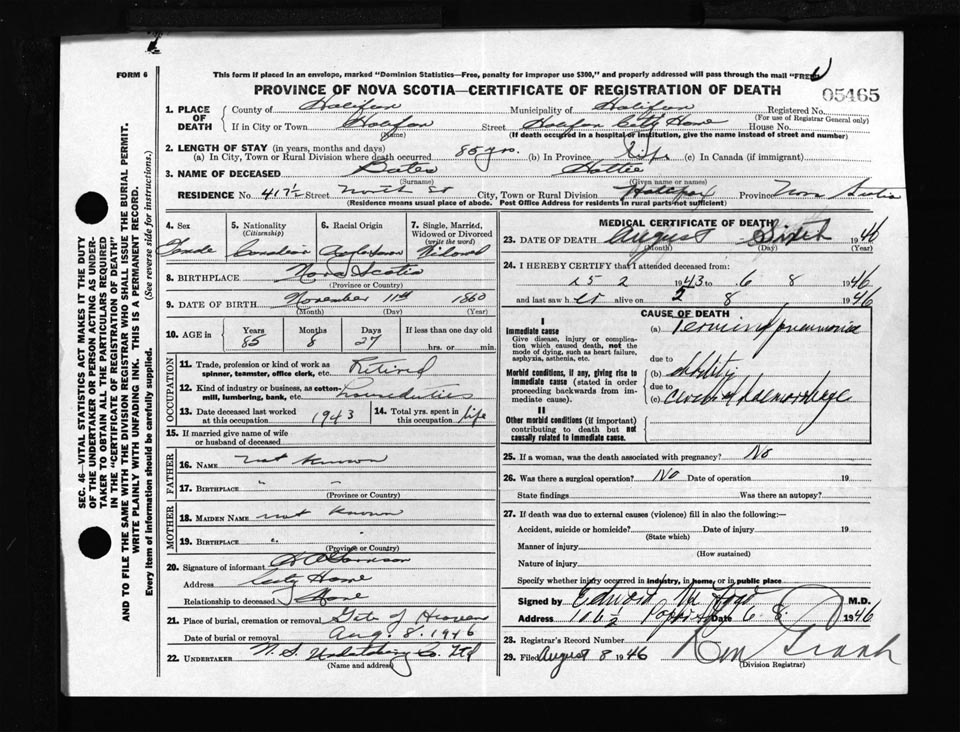 FORM 6
This form if placed in an envelope, marked "Dominion Statistics—Free, penalty for improper use $300," and properly addressed will pass through the mail "FREE"
PROVINCE OF NOVA SCOTIA—CERTIFICATE OF REGISTRATION OF DEATH
05465
1. PLACE OF DEATH
County of Halifax Municipality of Halifax Registered No.
(For use of Registrar General only)
If in City or Town Halifax Street Halifax City Home House No.
(Name) (If death occurred in a hospital or institution, give the name instead of street and number)
2. LENGTH OF STAY (in years, months and days)
(a) In City, Town or Rural Division where death occurred 85 yrs. (b) In Province Life (c) In Canada (if immigrant)
3. NAME OF DECEASED Bates Hattie
(Surname) (Given name or names)
RESIDENCE No. 417½ Street North St City, Town or Rural Division Halifax Province Nova Scotia
(Residence means usual place of abode. Post Office Address for residents in rural parts not sufficient)
4. Sex 5. Nationality (Citizenship) 6. Racial Origin 7. Single, Married, Widowed or Divorced (write the word)
Female Canadian Widowed
8. BIRTHPLACE Nova Scotia
(Province or Country)
9. DATE OF BIRTH November 11th 1860
(Month) (Day) (Year)
10. AGE in Years Months Days If less than one day old
85 8 27 hrs. or min.
OCCUPATION
11. Trade, profession or kind of work as spinner, teamster, office clerk, etc. Retired
12. Kind of industry or business, as cotton-mill, lumbering, bank, etc. Housduties
13. Date deceased last worked at this occupation 1943 14. Total yrs. spent in this occupation life
15. If married give name of wife or husband of deceased
FATHER
16. NAME not known
17. BIRTHPLACE " "
(Province or Country)
MOTHER
18. MAIDEN NAME not known
19. BIRTHPLACE " "
(Province or Country)
20. Signature of informant
Address City Home
Relationship to deceased None
21. Place of burial, cremation or removal Gate of Heaven
Date of burial or removal Aug. 8. 1946
22. UNDERTAKER N. S. Undertaking Co. Ltd
(Name and address)
MEDICAL CERTIFICATE OF DEATH
23. DATE OF DEATH August Sixth 1946
(Month) (Day) (Year)
24. I HEREBY CERTIFY that I attended deceased from:
15 2 1943 to 6 8 1946
and last saw her alive on 2 8 1946
CAUSE OF DEATH
I
Immediate cause
Give disease, injury or complication which caused death, not the mode of dying, such as heart failure, asphyxia, asthenia, etc.
(a) Terminal pneumonia
due to
Morbid conditions, if any, giving rise to immediate cause (stated in order proceeding backwards from immediate cause).
(b) debility
due to
(c) cerebral haemorrhage
II
Other morbid conditions (if important) contributing to death but not causally related to immediate cause.
25. If a woman, was the death associated with pregnancy? No
26. Was there a surgical operation? No Date of operation 19
State findings Was there an autopsy?
27. If death was due to external causes (violence) fill in also the following:—
Accident, suicide or homicide? Date of injury 19
(State which)
Manner of injury
(How sustained)
Nature of injury
Specify whether injury occurred in industry, in home, or in public place
Signed by M.D.
Address Date 6. 8. 1946
28. Registrar's Record Number
29. Filed August 8 1946
(Division Registrar)
SEC. 46—VITAL STATISTICS ACT MAKES IT THE DUTY
OF THE UNDERTAKER OR PERSON ACTING AS UNDER-
TAKER TO OBTAIN ALL THE PARTICULARS REQUIRED
IN THE "CERTIFICATE OF REGISTRATION OF DEATH"
AND TO FILE THE SAME WITH THE DIVISION REGISTRAR WHO SHALL ISSUE THE BURIAL PERMIT.
WRITE PLAINLY WITH UNFADING INK. THIS IS A PERMANENT RECORD.
Every item of information should be carefully supplied. (See reverse side for instructions.)